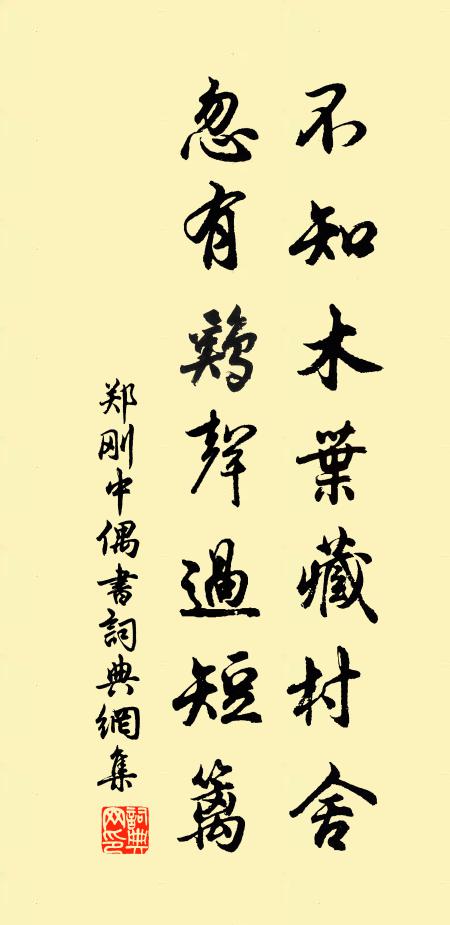 不知木葉藏村舍
忽有鷄聲過短籬
郑刚中偶書詞典網集
詞典網印